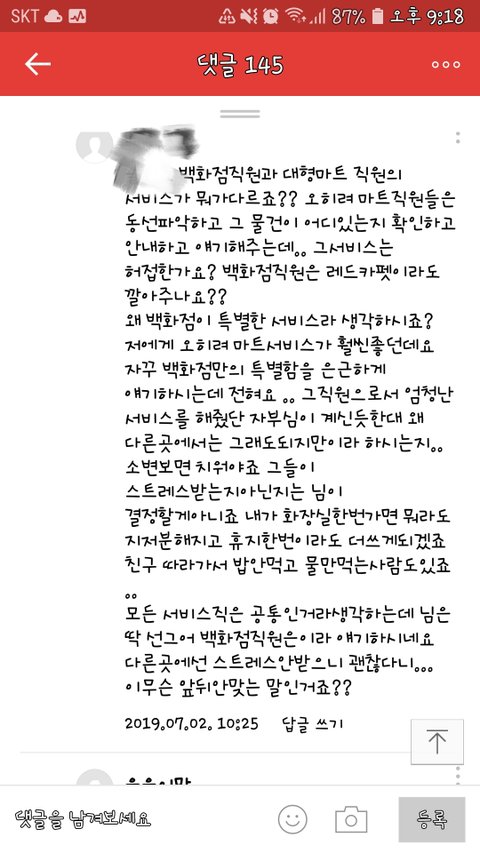 SKT 87% 오후 9:18
댓글 145
백화점직원과 대형마트 직원의
서비스가 뭐가다르죠?? 오히려 마트직원들은
동선파악하고 그 물건이 어디있는지 확인하고
안내하고 얘기해주는데.. 그서비스는
허접한가요? 백화점직원은 레드카펫이라도
깔아주나요??
왜 백화점이 특별한 서비스라 생각하시죠?
저에게 오히려 마트서비스가 훨씬좋던데요
자꾸 백화점만의 특별함을 은근하게
얘기하시는데 전혀요 .. 그직원으로서 엄청난
서비스를 해줬단 자부심이 계신듯한대 왜
다른곳에서는 그래도되지만이라 하시는지..
소변보면 치워야죠 그들이
스트레스받는지아닌지는 님이
결정할게아니죠 내가 화장실한번가면 뭐라도
지저분해지고 휴지한번이라도 더쓰게되겠죠
친구 따라가서 밥안먹고 물만먹는사람도있죠
..
모든 서비스직은 공통인거라생각하는데 님은
딱 선그어 백화점직원은이라 얘기하시네요
다른곳에선 스트레스안받으니 괜찮다니...
이무슨 앞뒤안맞는 말인거죠??
2019.07.02. 10:25 답글 쓰기
댓글을 남겨보세요 등록